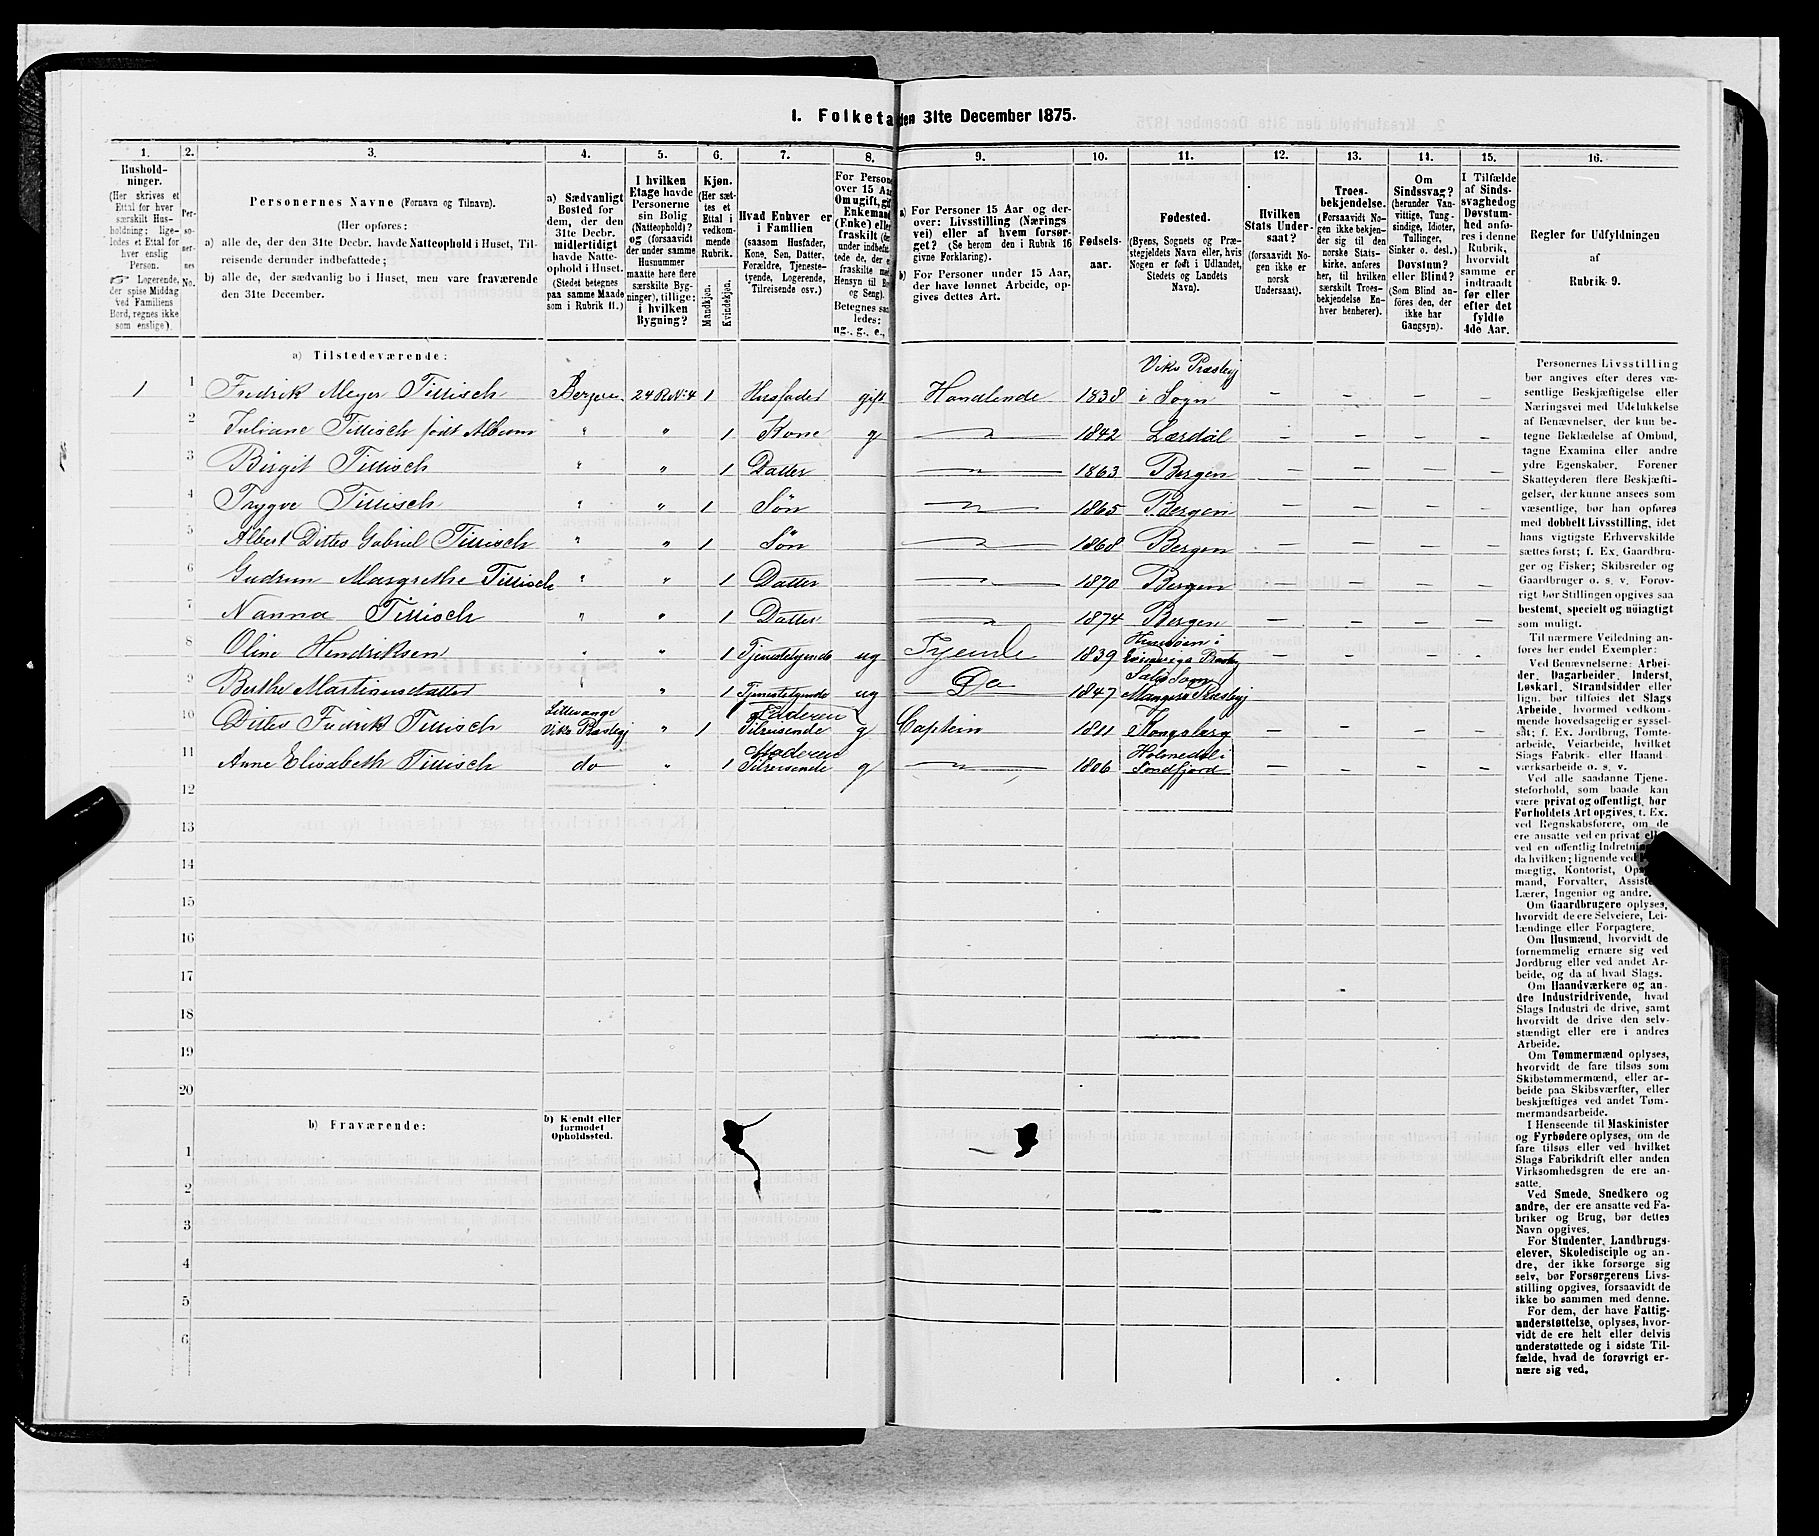 1. Folketa den 31te December 1875.
1. 2. 3. 4. 5. 6. 7. 8. 9. 10. 11. 12. 13. 14. 15. 16.
Hushold-
ninger.
(Her skrives et
Ettal for hver
særskilt Hus-
holdning; lige-
ledes et Ettal for
hver enslig
Person.
Logerende,
der spise Middag
ved Familiens
Bord, regnes ikke
som enslige).
Per-
so-
nes
No.
Personernes Navne (Fornavn og Tilnavn).
(Her opføres:
a) alle de, der den 31te Decbr. havde Natteophold i Huset, Til-
reisende derunder indbefattede;
b) alle de, der sædvanlig bo i Huset, men vare fraværende
den 31te December.
a) Sædvanligt
Bosted for
dem, der den
31te Decbr.
midlertidigt
havde Natte-
ophold i Huset.
(Stedet betegnes
paa samme Maade
som i Rubrik 11.)
I hvilken
Etage havde
Personerne
sin Bolig
(Natteophold)?
og (forsaavidt
der under samme
Husnummer
maatte høre flere
særskilte Byg-
ninger), tillige:
i hvilken
Bygning?
Kjøn.
(Her sæt-
tes et
Ettal i
vedkom-
mende
Rubrik.
Mandkjøn.
Kvindekjøn.
Hvad Enhver er
i Familien
(saasom Husfader,
Kone, Søn, Datter,
Forældre, Tjeneste-
tyende, Logerende,
Tilreisende osv.)
For Persone
over 15 Aar
Om ugift, gif
Enkemand
(Enke) elle
fraskilt (de
under indbefat
tede de, der e
fraskilte med
Hensyn til Bo
og Seng).
Betegnes saa
ledes:
ug., g., e.,
a) For Personer 15 Aar og der-
over: Livsstilling (Nærings
vei) eller af hvem forsør-
get? (Se herom den i Rubrik 16
givne Forklaring).
b) For Personer under 15 Aar,
der have lønnet Arbeide, op-
gives dettes Art.
Fødsels-
aar.
Fødested.
(Byens, Sognets og Præ-
stegjeldets Navn eller, hvis
Nogen er født i Udlandet,
Stedets og Landets
Navn).
Hvilken
Stats Under-
saat?
(forsaavidt No-
gen ikke er
norsk
Undersaat).
Troes-
bekjendelse.
(Forsaavidt No-
gen ikke bekjen-
der sig til den
norske Stats-
kirke, anføres
her, til hvilken
særskilt Troes-
bekjendelse En-
hver henhører).
Om
Sindssvag?
(herunder Van-
vittige, Tung-
sindige, Idioter,
Tullinger,
Sinker o. desl.)
Døvstum?
eller Blind?
(Som Blind an-
føres den, der
ikke har
Gangsyn).
I Tilfælde
af Sinds-
svaghed og
Døvstum-
hed anfø-
res i denne
Rubrik,
hvorvidt
samme er
indtraadt
før eller
efter det
fyldte
4de Aar.
Regler for Udfyldningen
af
Rubrik 9.
a) Tilstedeværende:
Viks Præstegj
1 1 Fredrik Meyer Tillisch Bergen 24 R No 4 1 Husfader gift Handlende 1838 i Sogn — — — —
2 Juliane Tillisch født " " 1 Kone g — 1842 Lærdal — — — —
3 Birgit Tillisch " " 1 Datter — 1863 Bergen — — — —
4 Trygve Tillisch " " 1 Søn — 1865 Bergen — — — —
5 Albert Ditlev Gabriel Tillisch " " 1 Søn — 1868 Bergen — — — —
6 Gudrun Margrethe Tillisch " " 1 Datter — 1870 Bergen — — — —
7 Nanna Tillisch " " 1 Datter — 1874 Bergen — — — —
8 Oline Hendriksen " " 1 Tjenestetyende ug Tyende 1839 — — — -
9 Berthe Martinusdatter " " 1 Tjenestetyende ug Do 1847 Manger Præstegj — — — -
10 Ditlev Fredrik Tillisch Viks Præstegj " 1 Faderen Tilreisende g Captein 1811 Kongsberg — — -
11 Anne Elisabeth Tillisch do " 1 Moderen Tilreisende g — 1806 Holmedal i Søndfjord — — — -
12
13
14
15
16
17
18
19
20
b) Fraværende:
b) Kjendt eller
formodet
Opholdssted.
1
2
3
4
5
6
Personernes Livsstilling
bør angives efter deres væ-
sentlige Beskjæftigelse eller
Næringsvei med Udelukkelse
af Benævnelser, der kun be-
tegne Beklædelse af Ombud,
tagne Examina eller andre
ydre Egenskaber. Forener
Skatteyderen flere Beskjæfti-
gelser, der kunne ansees som
væsentlige, bør han opføres
med dobbelt Livsstilling, idet
hans vigtigste Erhvervskilde
sættes først; f. Ex. Gaardbru-
ger og Fisker; Skibsreder og
Gaardbruger o. s. v. Forøv-
rigt bør Stillingen opgives saa
bestemt, specielt og nöiagtigt
som muligt.
Til nærmere Veiledning an-
føres her endel Exempler:
Ved Benævnelserne: Arbei-
der, Dagarbeider, Inderst,
Løskarl, Strandsidder eller
lign. bør tilføies det Slags
Arbeide, hvormed vedkom-
mende hovedsagelig er syssel-
sat; f. Ex. Jordbrug, Tomte-
arbeide, Veiarbeide, hvilket
Slags Fabrik- eller Haand-
værksarbeide o. s. v.
Ved alle saadanne Tjene-
steforhold, som baade kan
være privat og offentligt, bør
Forholdets Art opgives, t. Ex.
ved Regnskabsførere, om de
ere ansatte ved en privat ell
ved en offentlig Indretnin
da hvilken; lignende ved
mægtig, Kontorist, Op
mand, Forvalter, Assiste
Lærer, Ingeniør og andre.
Om Gaardbrugere oplyses,
hvorvidt de ere Selveiere, Lei-
lændinge eller Forpagtere.
Om Husmænd, hvorvidt de
fornemmelig ernære sig ved
Jordbrug eller ved andet Ar-
beide, og da af hvad Slags.
Om Haandværkere og an-
dre Industridrivende, hvad
Slags Industri de drive, samt
hvorvidt de drive den selv-
stændigt eller ere i andres
Arbeide.
Om Tømmermænd oplyses,
hvorvidt de fare tilsøs som
Skibstømmermænd, eller ar-
beide paa Skibsværfter, eller
beskjæftiges ved andet Tøm-
mermandsarbeide.
I Henseende til Maskinister
og Fyrbødere oplyses, om de
fare tilsøs eller ved hvilket
Slags Fabrikdrift eller anden
Virksomhedsgren de ere an-
satte.
Ved Smede, Snedkere og
andre, der ere ansatte ved Fa-
briker og Brug, bør dettes
Navn opgives.
For Studenter, Landbrugs-
elever, Skoledisciple og an-
dre, der ikke forsørge sig
selv, bør Forsørgerens Livs-
stilling opgives, forsaavidt de
ikke bo sammen med denne.
For dem, der have Fattig-
understøttelse, oplyses, hvor-
vidt de ere helt eller delvis
understøttede og i sidste Til-
fælde, hvad de forøvrigt er-
nære sig ved.